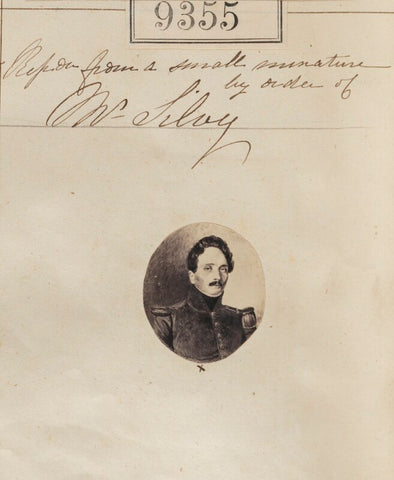 9355
Repdn from a small minature
by order of
Mr Silvy
x